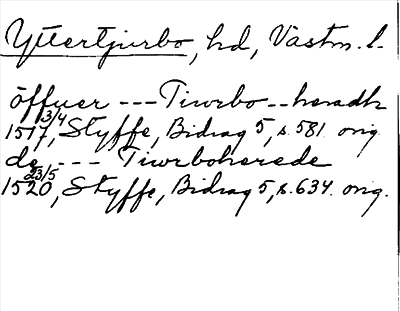 Yttertjurbo, hd, Västm. l.
öffuer --- Tiwrbo -- heradh
1517 3/4, Styffe, Bidrag 5, s. 581. orig
de --- Tiwrboherede
1520 23/5, Styffe, Bidrag 5, s. 634. orig.